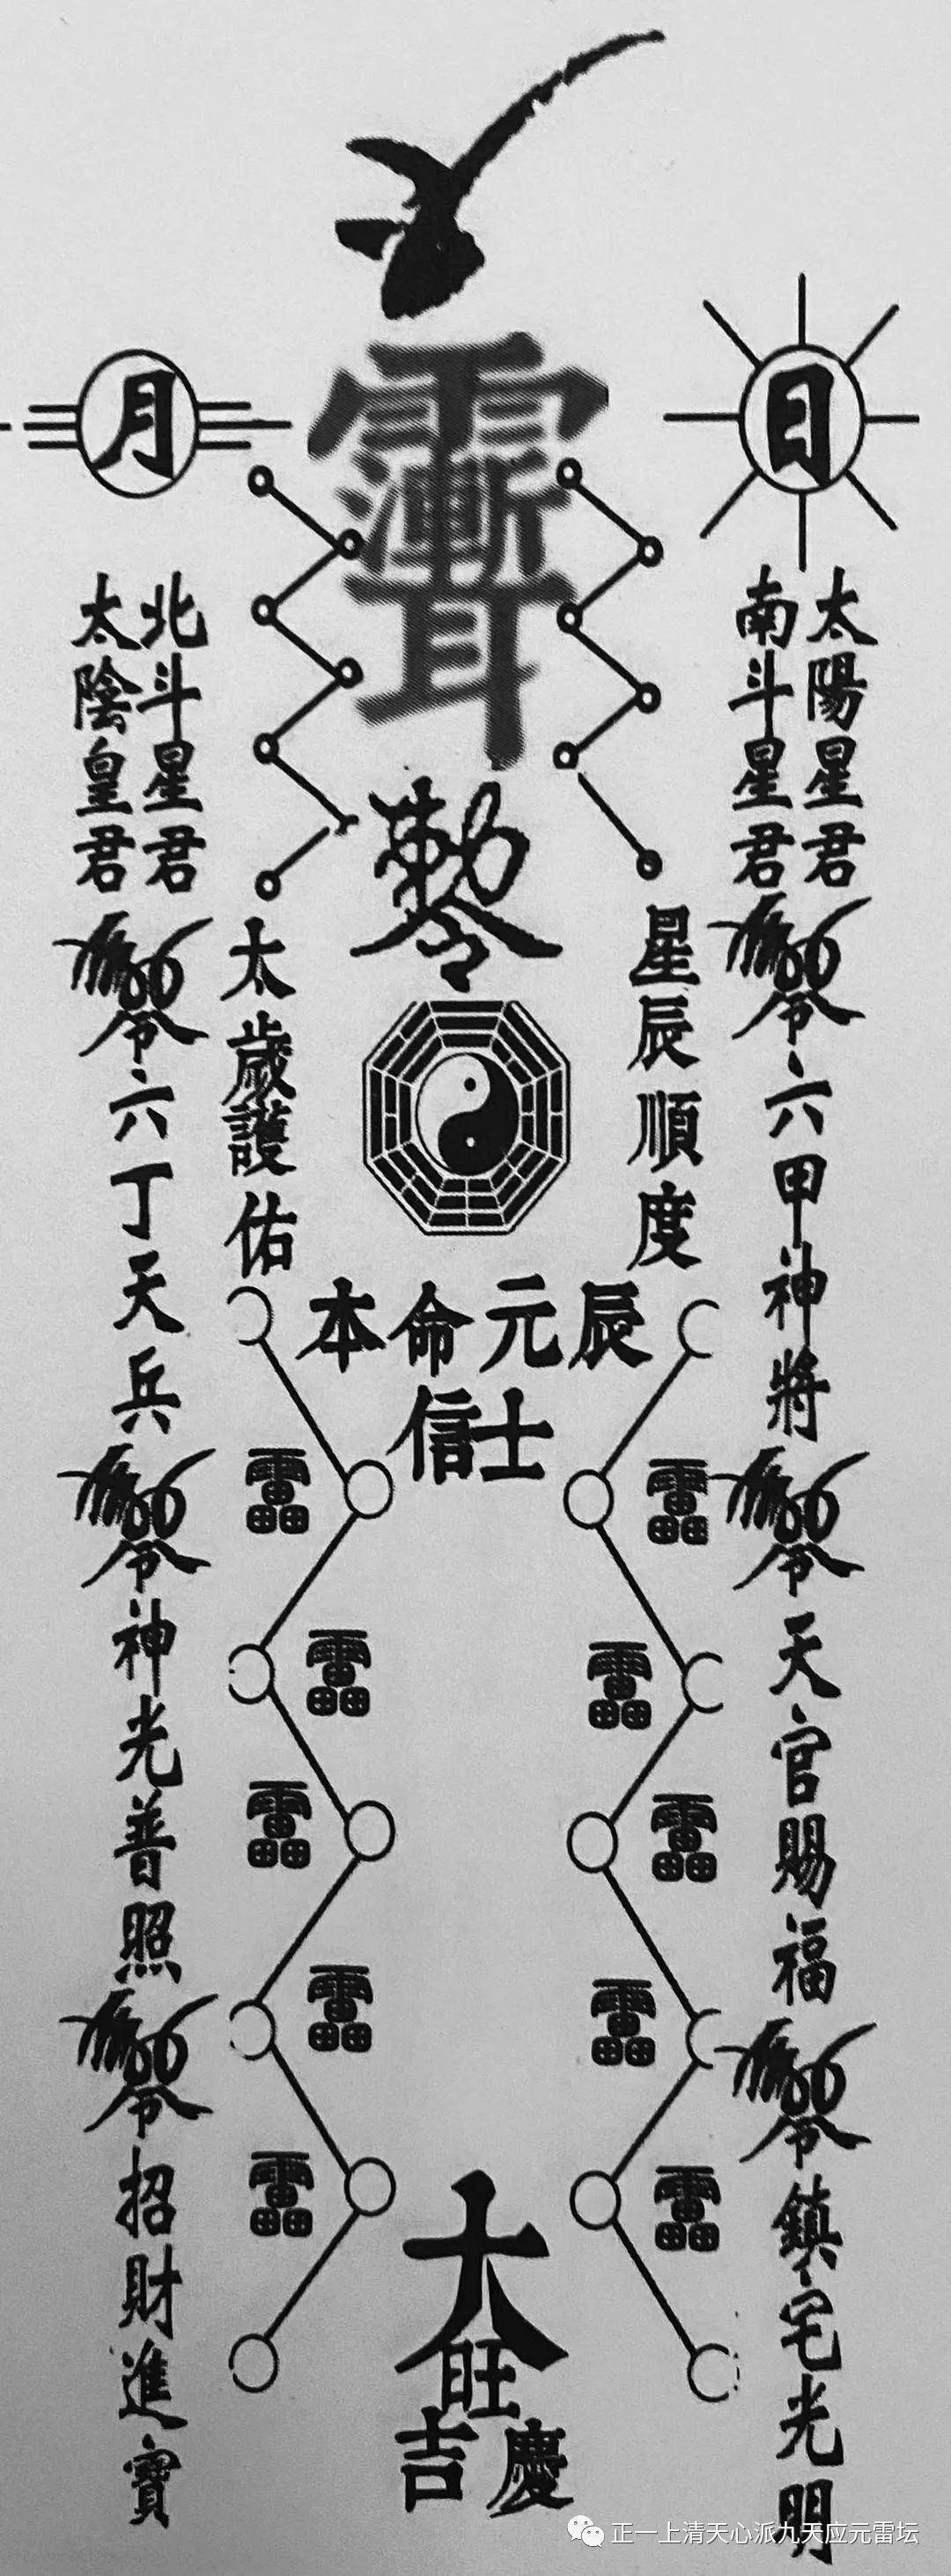 日
月
太陽星君
南斗星君
北斗星君
太陰皇君
勅令
六甲神將
天官賜福
鎮宅光明
星辰順度
太歲護佑
六丁天兵
神光普照
招財進寶
本命元辰
信士
靁
靁
靁
靁
靁
靁
靁
靁
靁
靁
大旺
吉慶
正一上清天心派九天应元雷坛